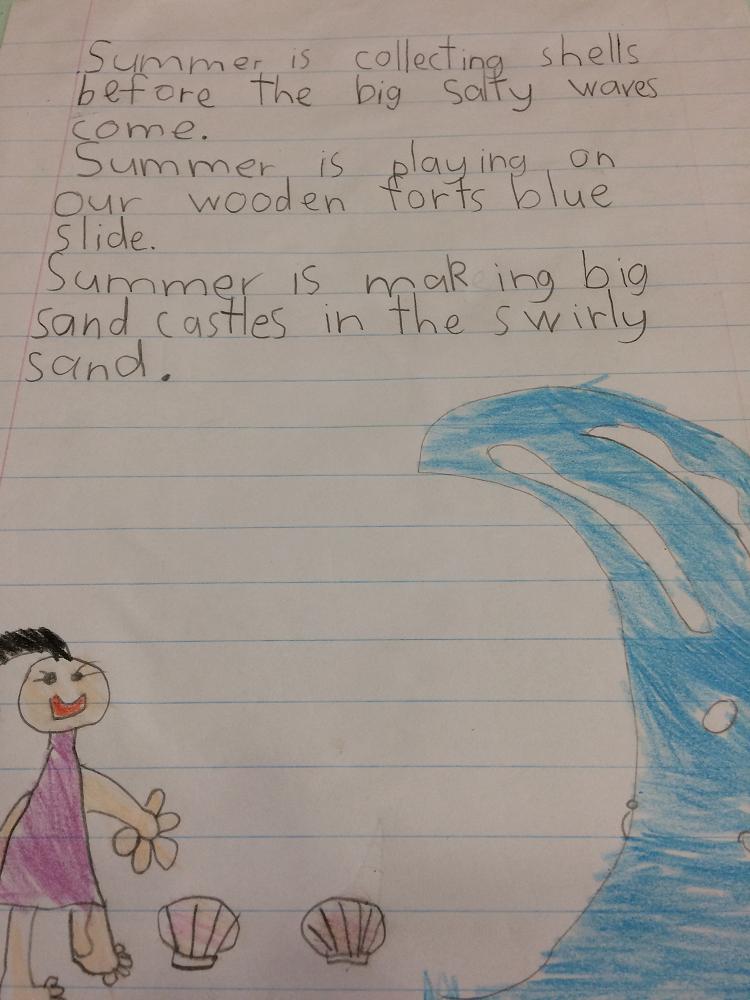 Summer is collecting shells
before the big salty waves
come.
Summer is playing on
our wooden forts blue
slide.
Summer is making big
sand castles in the swirly
sand.